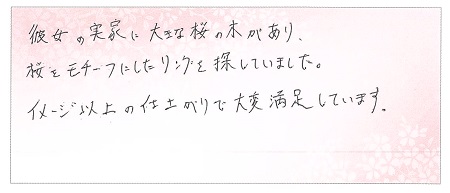 彼女の実家に大きな桜の木があり、
桜をモチーフにしたリングを探していました。
イメージ以上の仕上がりで大変満足しています。